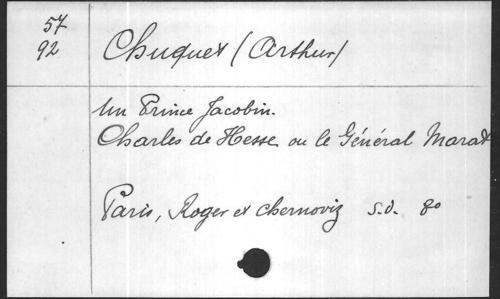 57
92
Chuquet (Arthur)
Un Prince Jacobin.
Charles de Hesse ou le Général Marat
Paris, Roger et Chernoviz s.d. 8o